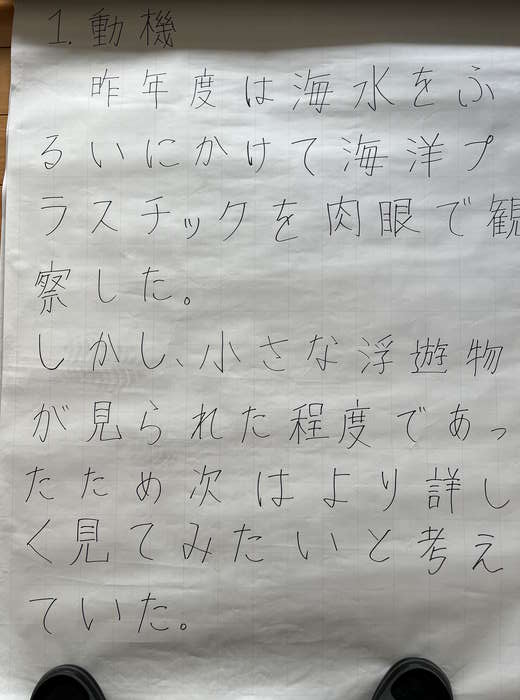 1. 動機
昨年度は海水をふ
るいにかけて海洋プ
ラスチックを肉眼で観
察した。
しかし、小さな浮遊物
が見られた程度であっ
たため次はより詳し
く見てみたいと考え
ていた。